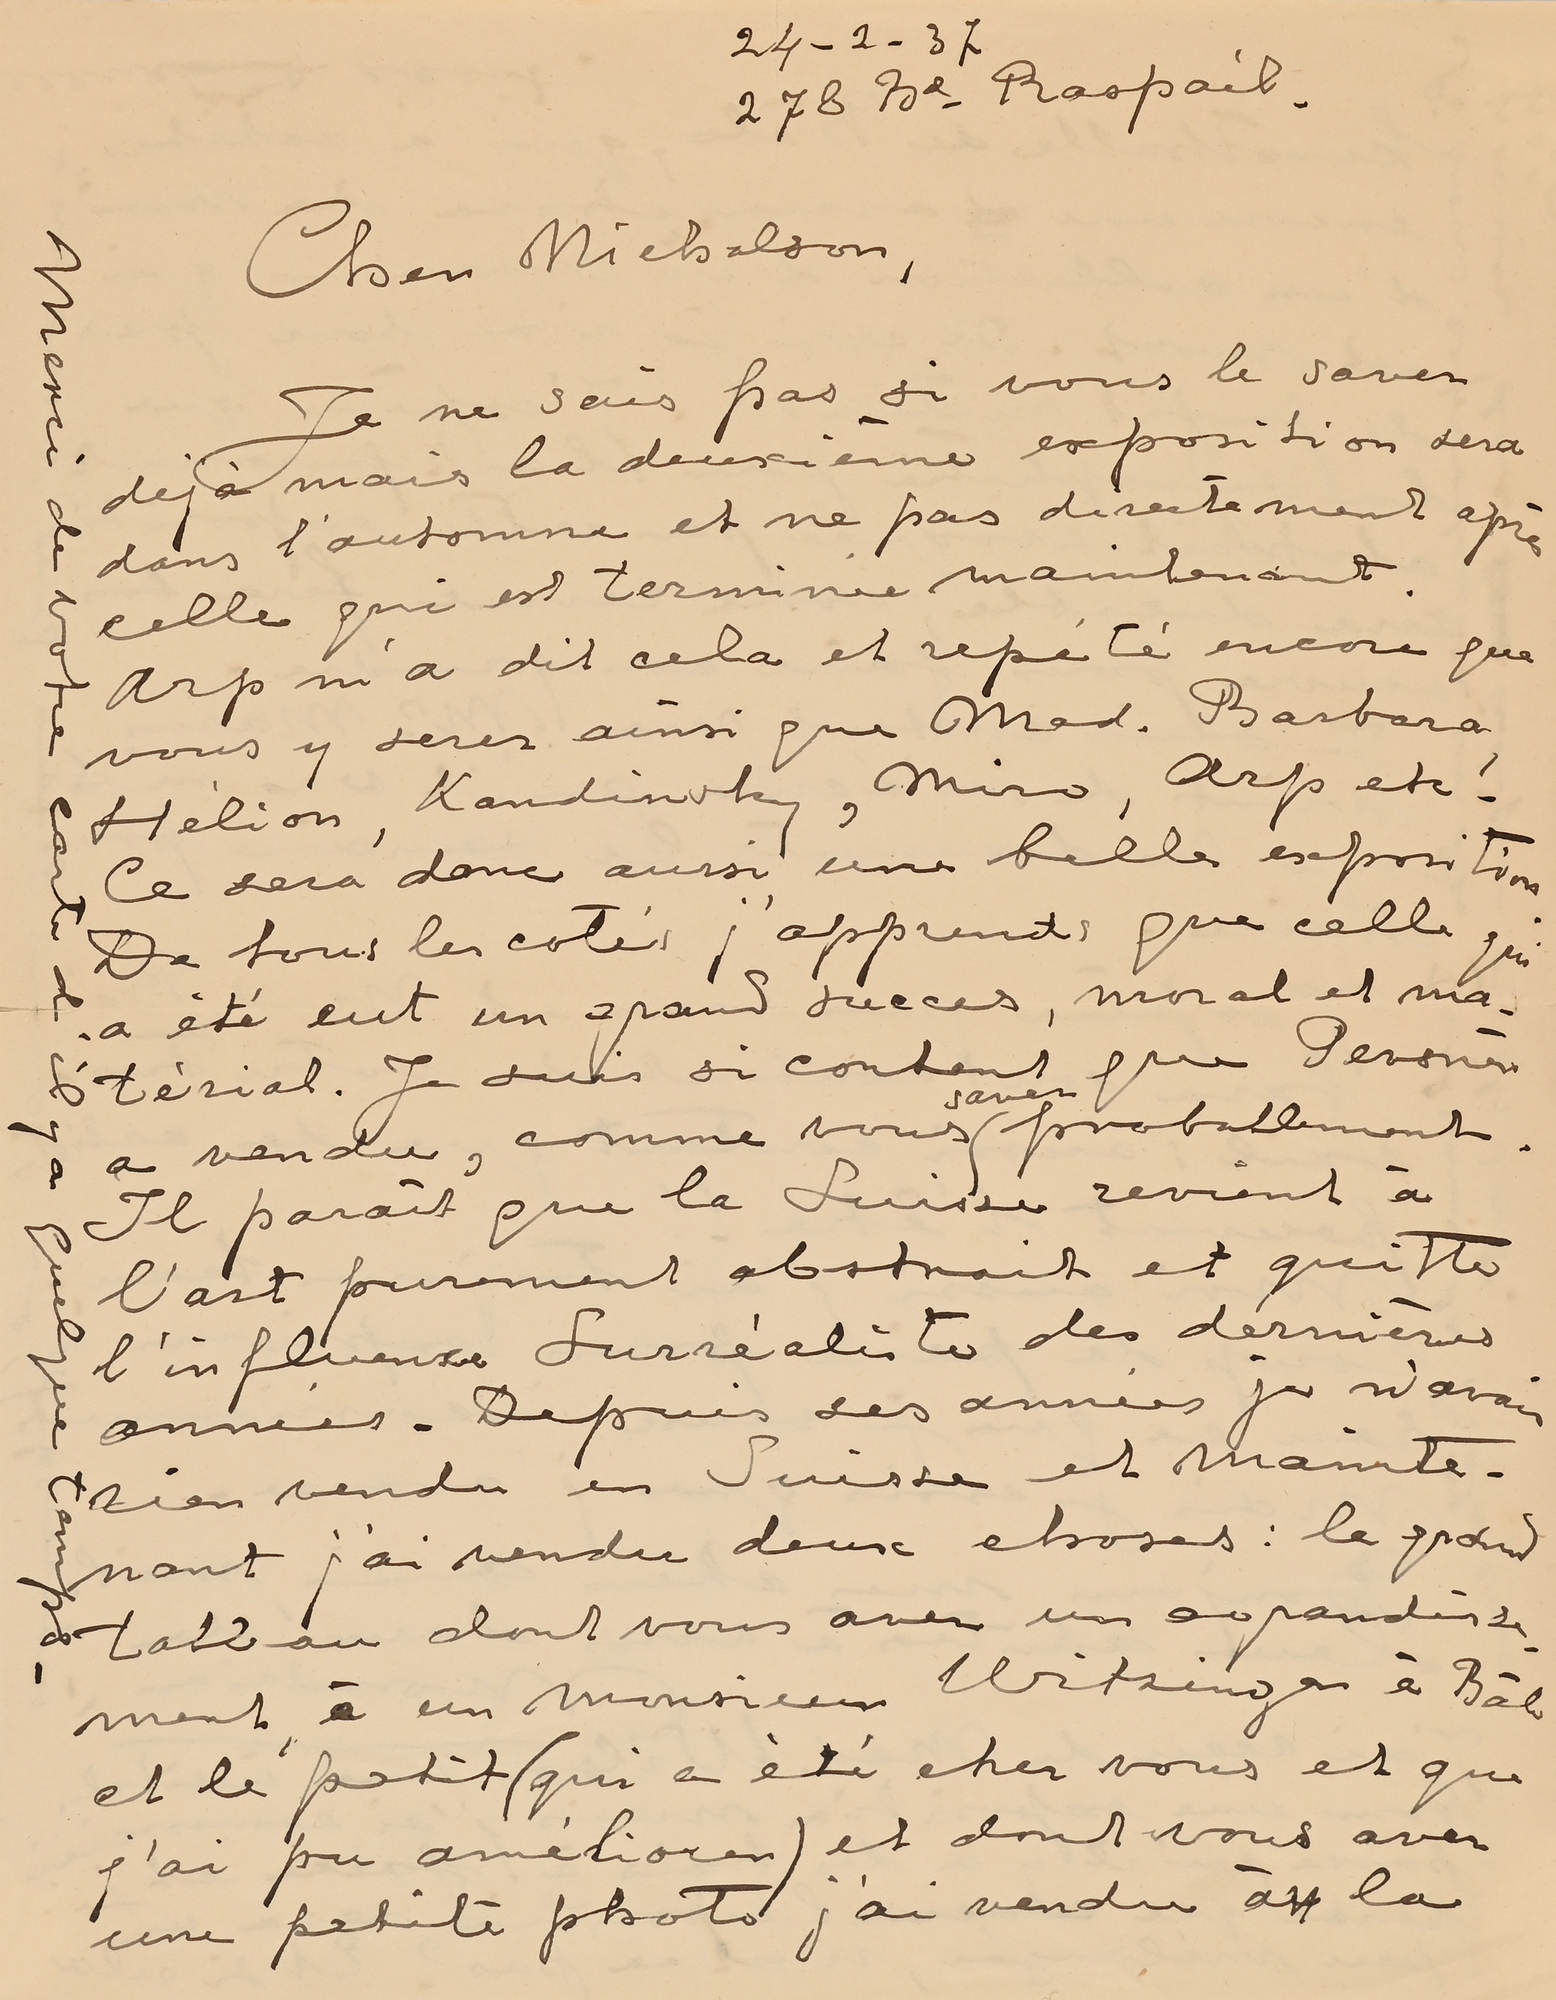 24-2-37
278 Bd. Raspail.
Cher Nicholson,
Je ne sais pas si vous le savez
déjà mais la deuxième exposition sera
dans l'automne et ne pas directement après
celle qui est terminée maintenant.
Arp m'a dit cela et repété encore que
vous y serez ainsi que Mad. Barbara,
Hélion, Kandinsky, Miro, Arp etc!
Ce sera donc aussi une belle exposition
De tous les cotés j'apprends que celle qui
a été eut un grand succes, moral et ma-
térial. Je suis si content que Pevsner
a vendu, comme vous savez probablement.
Il paraît que la Suisse revient à
l'art purement abstrait et quitte
l'influence Surréaliste des dernières
années. Depuis ses années je n'avais
rien vendu en Suisse et mainte-
nant j'ai vendu deux choses: le grand
tableau dont vous avez un agrandisse-
ment, à un monsieur Witzinger à Bâle
et le petit (qui a été chez vous et que
j'ai pu améliorer) et dont vous avez
une petite photo j'ai vendu à la
Merci de votre carte d'il y a quelque temps-